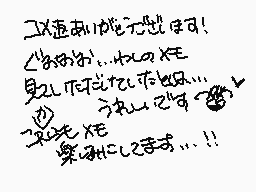 コメ返ありがとうございます!
ぐおおお…わしのメモ
見ていただけていたとは…
うれしいです
(か)
つれしもメモ
楽しみにしてます…!!